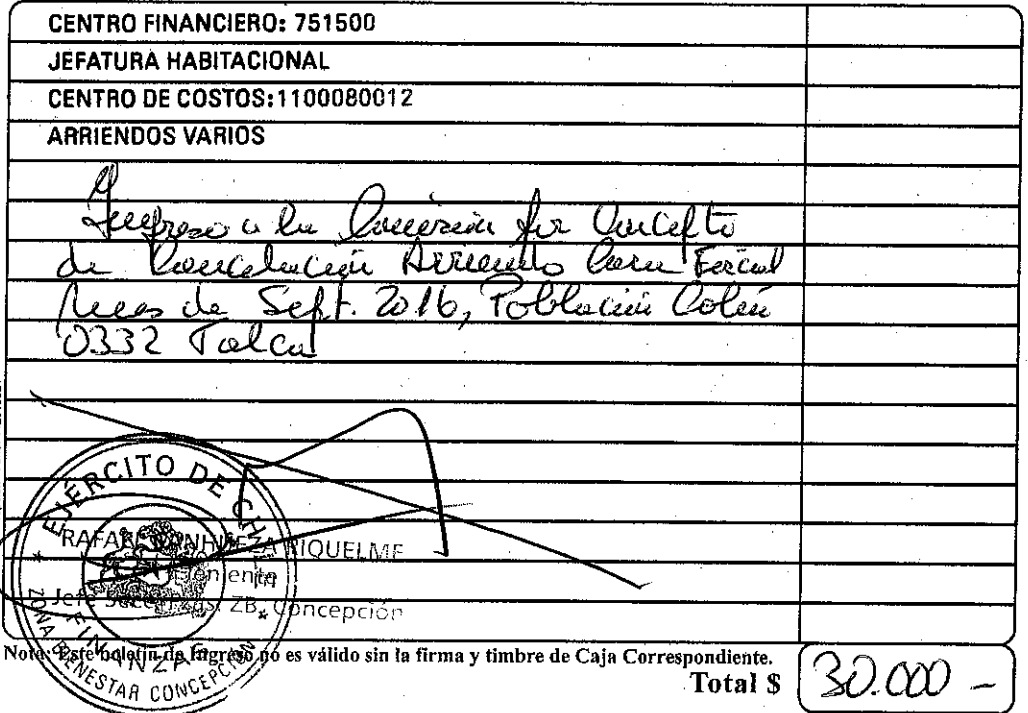 CENTRO FINANCIERO: 751500
JEFATURA HABITACIONAL
CENTRO DE COSTOS:1100080012
ARRIENDOS VARIOS
Ingreso a la Comisión por Concepto
de Cancelación Arriendo Casa Fiscal
Mes de Sept. 2016, Población Colín
0332 Talca
EJÉRCITO DE CHILE
RIQUELME
Teniente
ZB. Concepción
FINANZAS
ZONA BIENESTAR CONCEPCION
Nota: Este boletín de Ingreso no es válido sin la firma y timbre de Caja Correspondiente.
Total $ 30.000 -